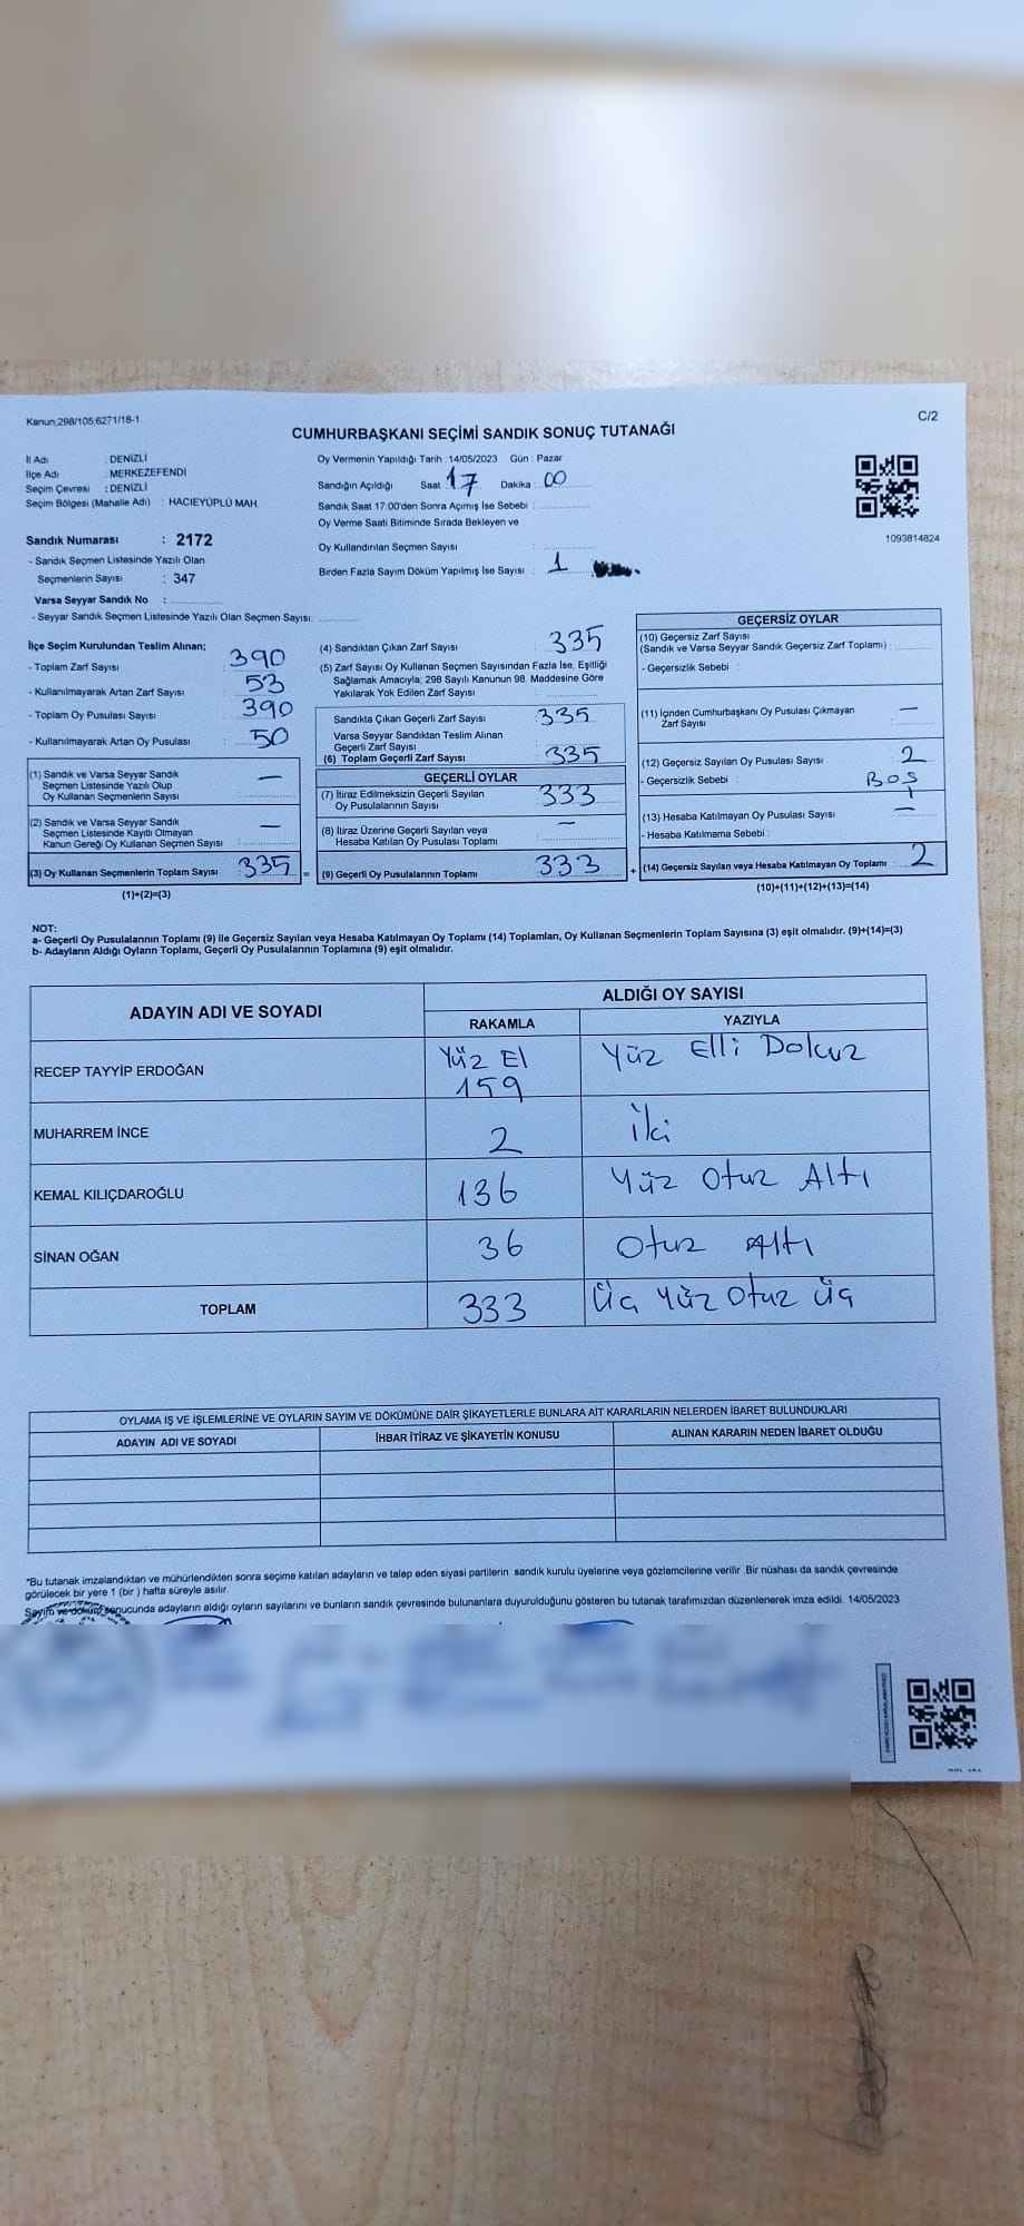 Kanun;298/105;6271/18-1
C/2
CUMHURBAŞKANI SEÇİMİ SANDIK SONUÇ TUTANAĞI
İl Adı : DENİZLİ
İlçe Adı : MERKEZEFENDİ
Seçim Çevresi : DENİZLİ
Seçim Bölgesi (Mahalle Adı) : HACIEYÜPLÜ MAH.
Sandık Numarası : 2172
- Sandık Seçmen Listesinde Yazılı Olan
Seçmenlerin Sayısı : 347
Varsa Seyyar Sandık No :
- Seyyar Sandık Seçmen Listesinde Yazılı Olan Seçmen Sayısı:
Oy Vermenin Yapıldığı Tarih : 14/05/2023 Gün : Pazar
Sandığın Açıldığı Saat : 17 Dakika : 00
Sandık Saat 17:00'den Sonra Açımış İse Sebebi :
Oy Verme Saati Bitiminde Sırada Bekleyen ve
Oy Kullandırılan Seçmen Sayısı :
Birden Fazla Sayım Döküm Yapılmış İse Sayısı : 1
1093814824
İlçe Seçim Kurulundan Teslim Alınan;
- Toplam Zarf Sayısı : 390
- Kullanılmayarak Artan Zarf Sayısı : 53
- Toplam Oy Pusulası Sayısı : 390
- Kullanılmayarak Artan Oy Pusulası : 50
(1) Sandık ve Varsa Seyyar Sandık
Seçmen Listesinde Yazılı Olup
Oy Kullanan Seçmenlerin Sayısı : —
(2) Sandık ve Varsa Seyyar Sandık
Seçmen Listesinde Kayıtlı Olmayan
Kanun Gereği Oy Kullanan Seçmen Sayısı : —
(3) Oy Kullanan Seçmenlerin Toplam Sayısı : 335
(1)+(2)=(3)
(4) Sandıktan Çıkan Zarf Sayısı : 335
(5) Zarf Sayısı Oy Kullanan Seçmen Sayısından Fazla İse, Eşitliği
Sağlamak Amacıyla; 298 Sayılı Kanunun 98. Maddesine Göre
Yakılarak Yok Edilen Zarf Sayısı :
Sandıkta Çıkan Geçerli Zarf Sayısı : 335
Varsa Seyyar Sandıktan Teslim Alınan
Geçerli Zarf Sayısı :
(6) Toplam Geçerli Zarf Sayısı : 335
GEÇERLİ OYLAR
(7) İtiraz Edilmeksizin Geçerli Sayılan
Oy Pusulalarının Sayısı : 333
(8) İtiraz Üzerine Geçerli Sayılan veya
Hesaba Katılan Oy Pusulası Toplamı : —
= (9) Geçerli Oy Pusulalarının Toplamı : 333
GEÇERSİZ OYLAR
(10) Geçersiz Zarf Sayısı
(Sandık ve Varsa Seyyar Sandık Geçersiz Zarf Toplamı) :
- Geçersizlik Sebebi :
(11) İçinden Cumhurbaşkanı Oy Pusulası Çıkmayan
Zarf Sayısı : —
(12) Geçersiz Sayılan Oy Pusulası Sayısı : 2
- Geçersizlik Sebebi : BOŞ
(13) Hesaba Katılmayan Oy Pusulası Sayısı : —
- Hesaba Katılmama Sebebi :
+ (14) Geçersiz Sayılan veya Hesaba Katılmayan Oy Toplamı : 2
(10)+(11)+(12)+(13)=(14)
NOT:
a- Geçerli Oy Pusulalarının Toplamı (9) İle Geçersiz Sayılan veya Hesaba Katılmayan Oy Toplamı (14) Toplamları, Oy Kullanan Seçmenlerin Toplam Sayısına (3) eşit olmalıdır. (9)+(14)=(3)
b- Adayların Aldığı Oyların Toplamı, Geçerli Oy Pusulalarının Toplamına (9) eşit olmalıdır.
ADAYIN ADI VE SOYADI
ALDIĞI OY SAYISI
RAKAMLA
YAZIYLA
RECEP TAYYİP ERDOĞAN Yüz El 159 Yüz Elli Dokuz
MUHARREM İNCE 2 İki
KEMAL KILIÇDAROĞLU 136 Yüz Otuz Altı
SİNAN OĞAN 36 Otuz Altı
TOPLAM 333 Üç Yüz Otuz Üç
OYLAMA İŞ VE İŞLEMLERİNE VE OYLARIN SAYIM VE DÖKÜMÜNE DAİR ŞİKAYETLERLE BUNLARA AİT KARARLARIN NELERDEN İBARET BULUNDUKLARI
ADAYIN ADI VE SOYADI
İHBAR İTİRAZ VE ŞİKAYETİN KONUSU
ALINAN KARARIN NEDEN İBARET OLDUĞU
*Bu tutanak imzalandıktan ve mühürlendikten sonra seçime katılan adayların ve talep eden siyasi partilerin sandık kurulu üyelerine veya gözlemcilerine verilir. Bir nüshası da sandık çevresinde
görülecek bir yere 1 (bir ) hafta süreyle asılır.
Sayım ve döküm sonucunda adayların aldığı oyların sayılarını ve bunların sandık çevresinde bulunanlara duyurulduğunu gösteren bu tutanak tarafımızdan düzenlenerek imza edildi. 14/05/2023